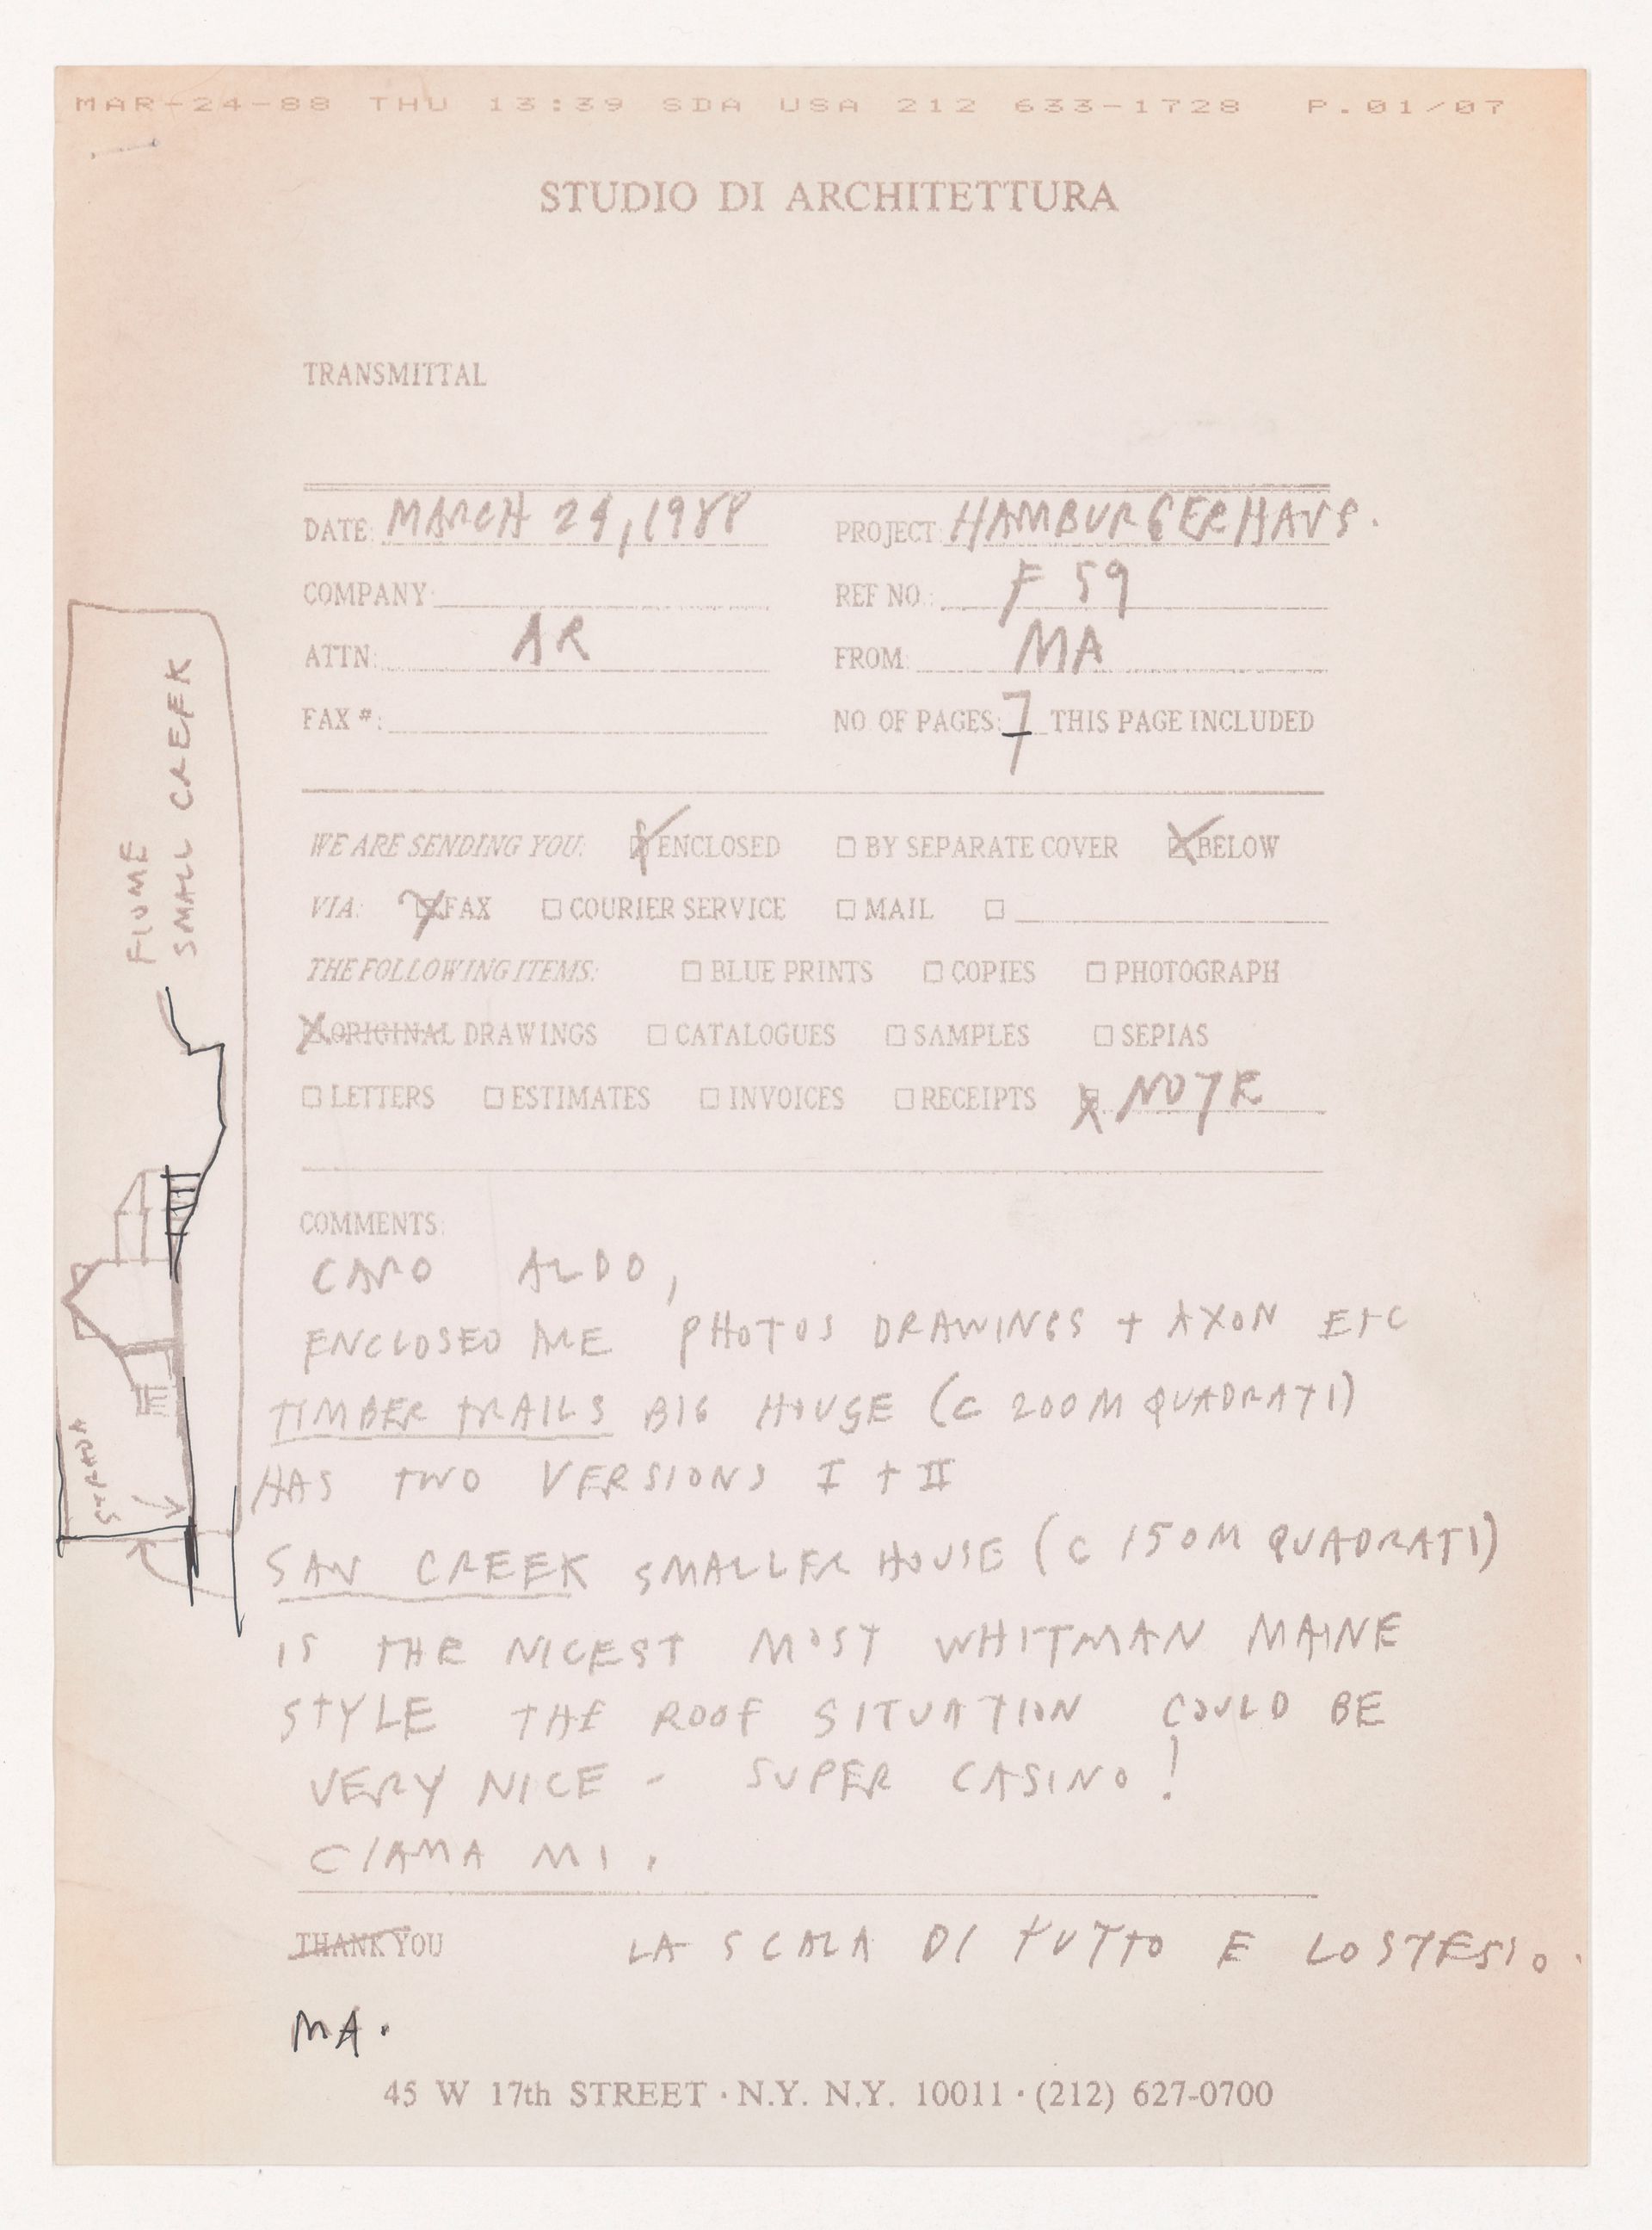 MAR-24-88 THU 13:39 SDA USA 212 633-1728 P.01/07
STUDIO DI ARCHITETTURA
TRANSMITTAL
DATE: MARCH 24, 1988 PROJECT: HAMBURGERHAUS.
COMPANY: REF NO.: F 59
ATTN: AR FROM: MA
FAX #: NO OF PAGES: 7 THIS PAGE INCLUDED
WE ARE SENDING YOU: ENCLOSED BY SEPARATE COVER BELOW
VIA: FAX COURIER SERVICE MAIL
THE FOLLOWING ITEMS: BLUE PRINTS COPIES PHOTOGRAPH
ORIGINAL DRAWINGS CATALOGUES SAMPLES SEPIAS
LETTERS ESTIMATES INVOICES RECEIPTS NOTE
FIUME
SMALL CREEK
STRADA
COMMENTS:
CARO ALDO,
ENCLOSED ARE PHOTOS DRAWINGS + AXON ETC
TIMBER TRAILS BIG HOUSE (C 200 M QUADRATI)
HAS TWO VERSIONS I + II
SAW CREEK SMALLER HOUSE (C 150 M QUADRATI)
IS THE NICEST MOST WHITMAN MAINE
STYLE THE ROOF SITUATION COULD BE
VERY NICE - SUPER CASINO!
CIAMA MI.
THANK YOU LA SCALA DI TUTTO E LO STESSO.
MA.
45 W 17th STREET · N.Y. N.Y. 10011 · (212) 627-0700